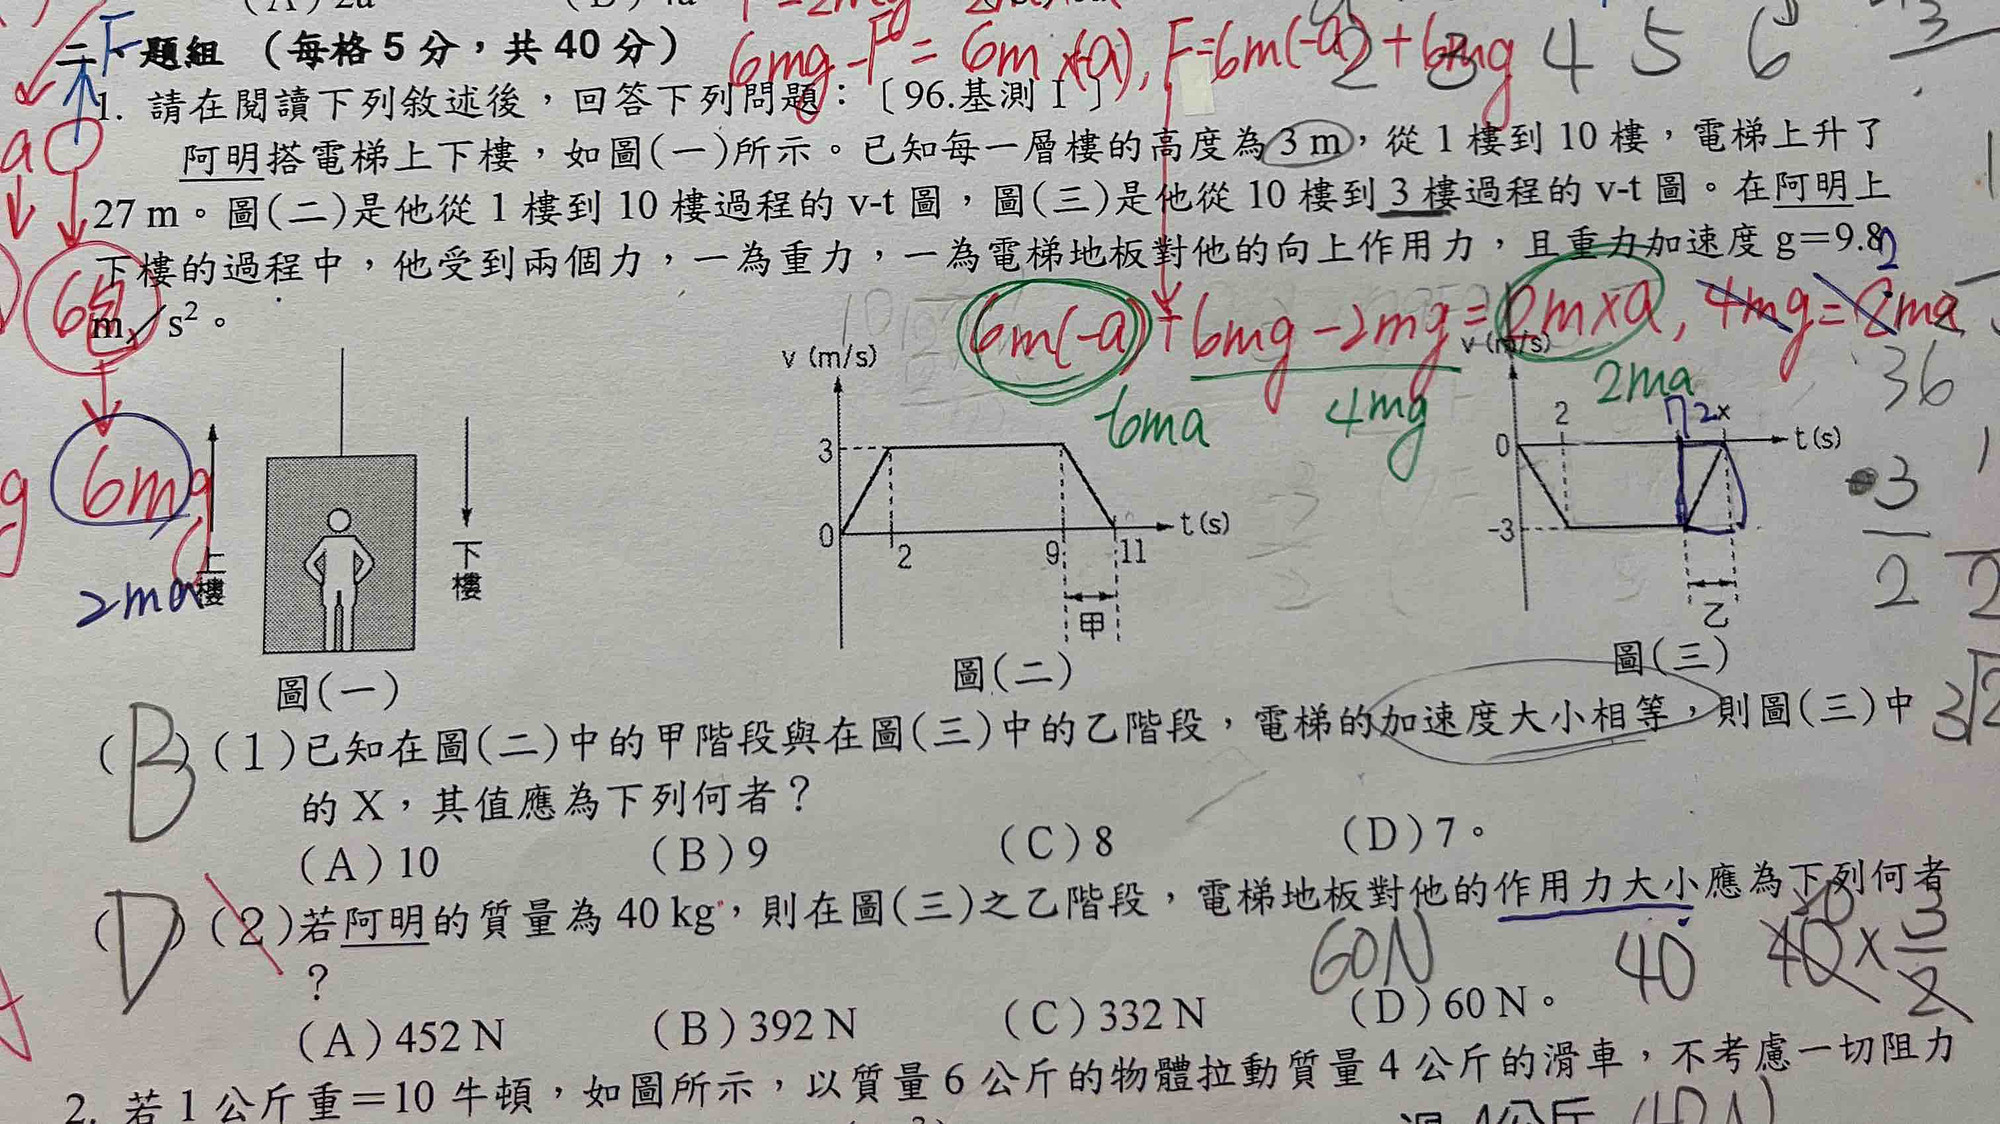 二、題組（每格5分，共40分）
6mg-F = 6m×(-a), F=6m(-a)+6mg
2 3 4 5 6
1. 請在閱讀下列敘述後，回答下列問題：〔96.基測Ⅰ〕
阿明搭電梯上下樓，如圖(一)所示。已知每一層樓的高度為3 m，從1樓到10樓，電梯上升了
27 m。圖(二)是他從1樓到10樓過程的v-t圖，圖(三)是他從10樓到3樓過程的v-t圖。在阿明上
下樓的過程中，他受到兩個力，一為重力，一為電梯地板對他的向上作用力，且重力加速度g=9.8
m／s²。
6m(-a)+6mg-2mg=2m×a, 4mg=2ma
6ma 4mg 2ma
36
6mg
2ma
上樓
下樓
圖(一)
v (m/s)
3
0
2
9
11
t(s)
甲
圖(二)
v (m/s)
0
2
72x
t(s)
-3
乙
圖(三)
3
2
(B)(1)已知在圖(二)中的甲階段與在圖(三)中的乙階段，電梯的加速度大小相等，則圖(三)中
的X，其值應為下列何者？
(A)10 (B)9 (C)8 (D)7。
(D)(2)若阿明的質量為40 kg，則在圖(三)之乙階段，電梯地板對他的作用力大小應為下列何者
？
60N 40 40×3/2
20
(A)452 N (B)392 N (C)332 N (D)60 N。
2. 若1公斤重=10牛頓，如圖所示，以質量6公斤的物體拉動質量4公斤的滑車，不考慮一切阻力